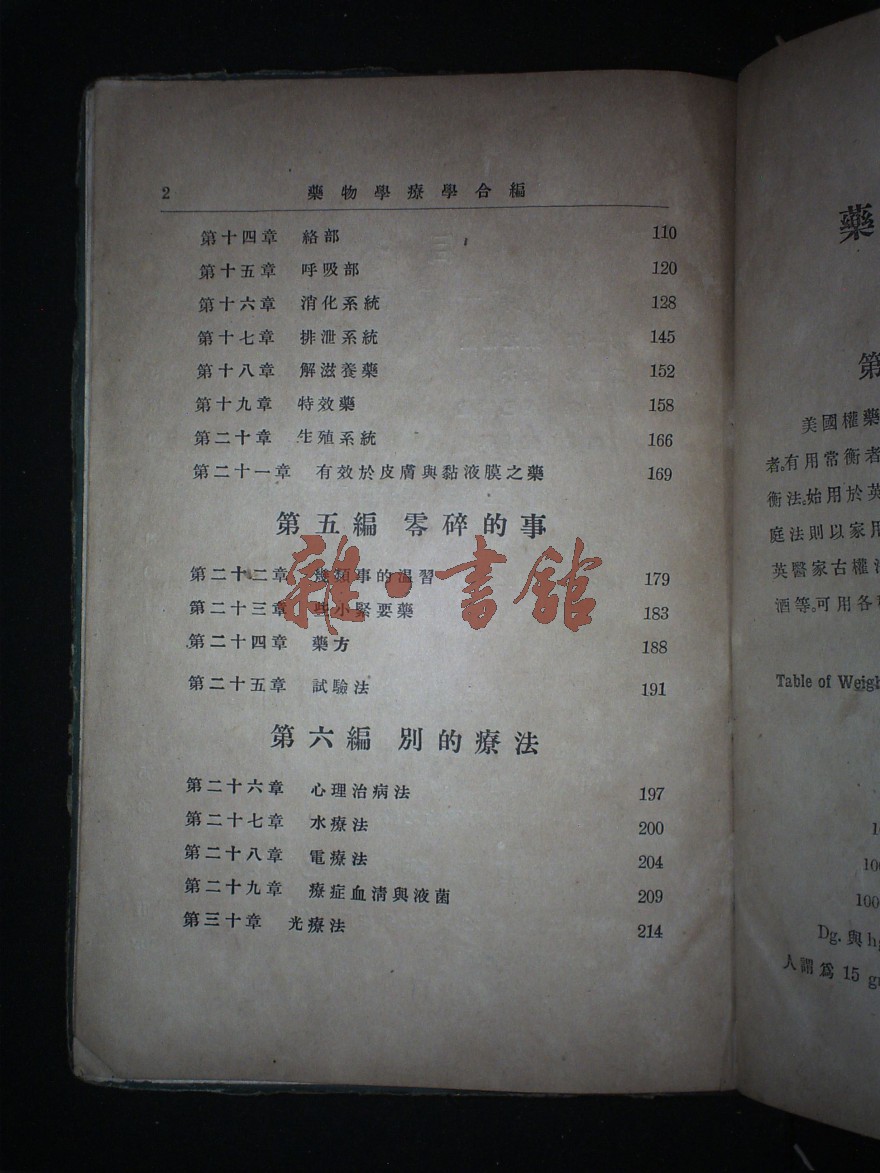 2 藥物學療學合編
第十四章 絡部 110
第十五章 呼吸部 120
第十六章 消化系統 128
第十七章 排泄系統 145
第十八章 解滋養藥 152
第十九章 特效藥 158
第二十章 生殖系統 166
第二十一章 有效於皮膚與黏液膜之藥 169
第五編 零碎的事
第二十二章 幾類事的溫習 179
第二十三章 些小緊要藥 183
第二十四章 藥方 188
第二十五章 試驗法 191
第六編 別的療法
第二十六章 心理治病法 197
第二十七章 水療法 200
第二十八章 電療法 204
第二十九章 療症血清與液菌 209
第三十章 光療法 214
雜·書館
藥
第
美國權藥
者。有用常衡者
衡法。始用於英
庭法則以家用
英醫家古權
酒等。可用各
Table of Weigh
10
100
100
Dg. 與 hg
人謂爲 15 gr